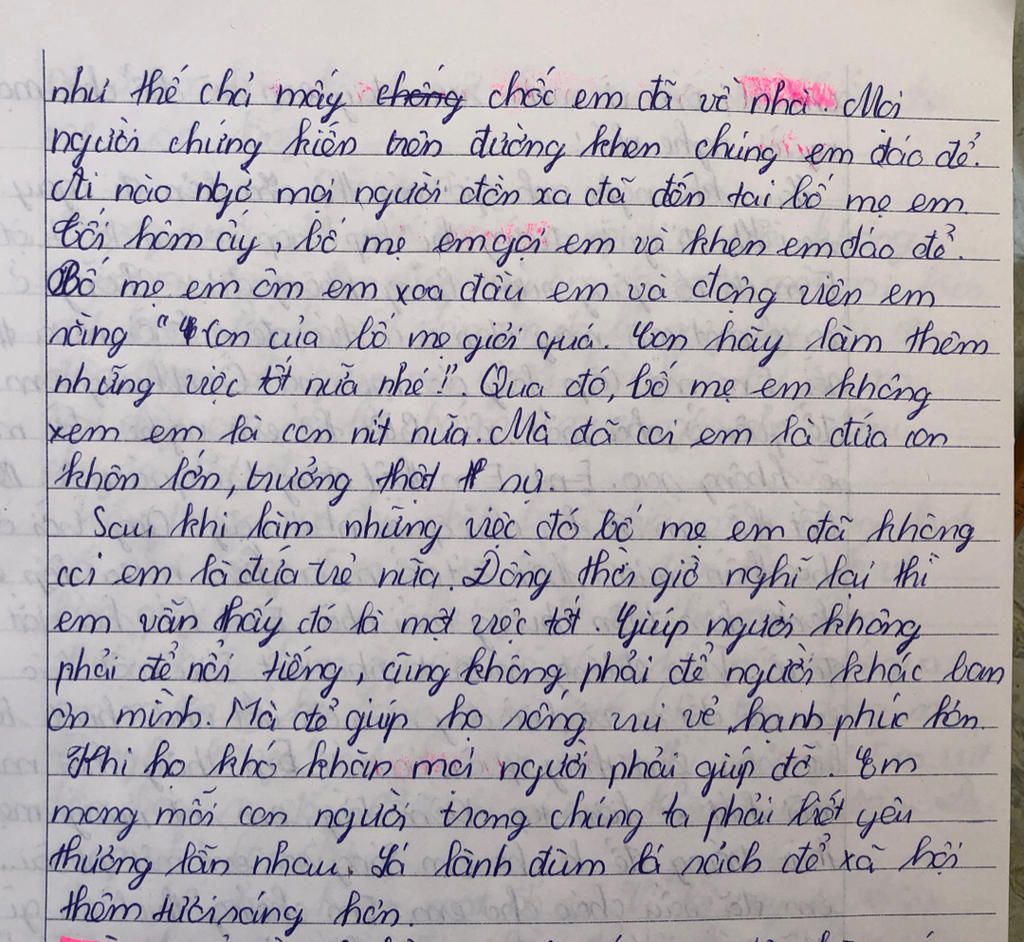 như thế chả mấy chống chốc em đã về nhà. Mọi
người chứng kiến trên đường khen chúng em đáo để.
Ai nào ngờ mọi người đồn xa đã đến tai bố mẹ em.
Tối hôm ấy, bố mẹ em gọi em và khen em đáo để.
Bố mẹ em ôm em xoa đầu em và động viên em
rằng "Con của bố mẹ giỏi quá. Con hãy làm thêm
những việc tốt nữa nhé!". Qua đó, bố mẹ em không
xem em là con nít nữa. Mà đã coi em là đứa con
khôn lớn, trưởng thật sự.
Sau khi làm những việc đó bố mẹ em đã không
coi em là đứa trẻ nữa. Đồng thời giờ nghĩ lại thì
em vẫn thấy đó là một việc tốt. Giúp người không
phải để nổi tiếng, cũng không phải để người khác ban
ơn mình. Mà để giúp họ sống vui vẻ, hạnh phúc hơn.
Khi họ khó khăn mọi người phải giúp đỡ. Em
mong mỗi con người trong chúng ta phải biết yêu
thương lẫn nhau. Lá lành đùm lá rách để xã hội
thêm tươi sáng hơn.